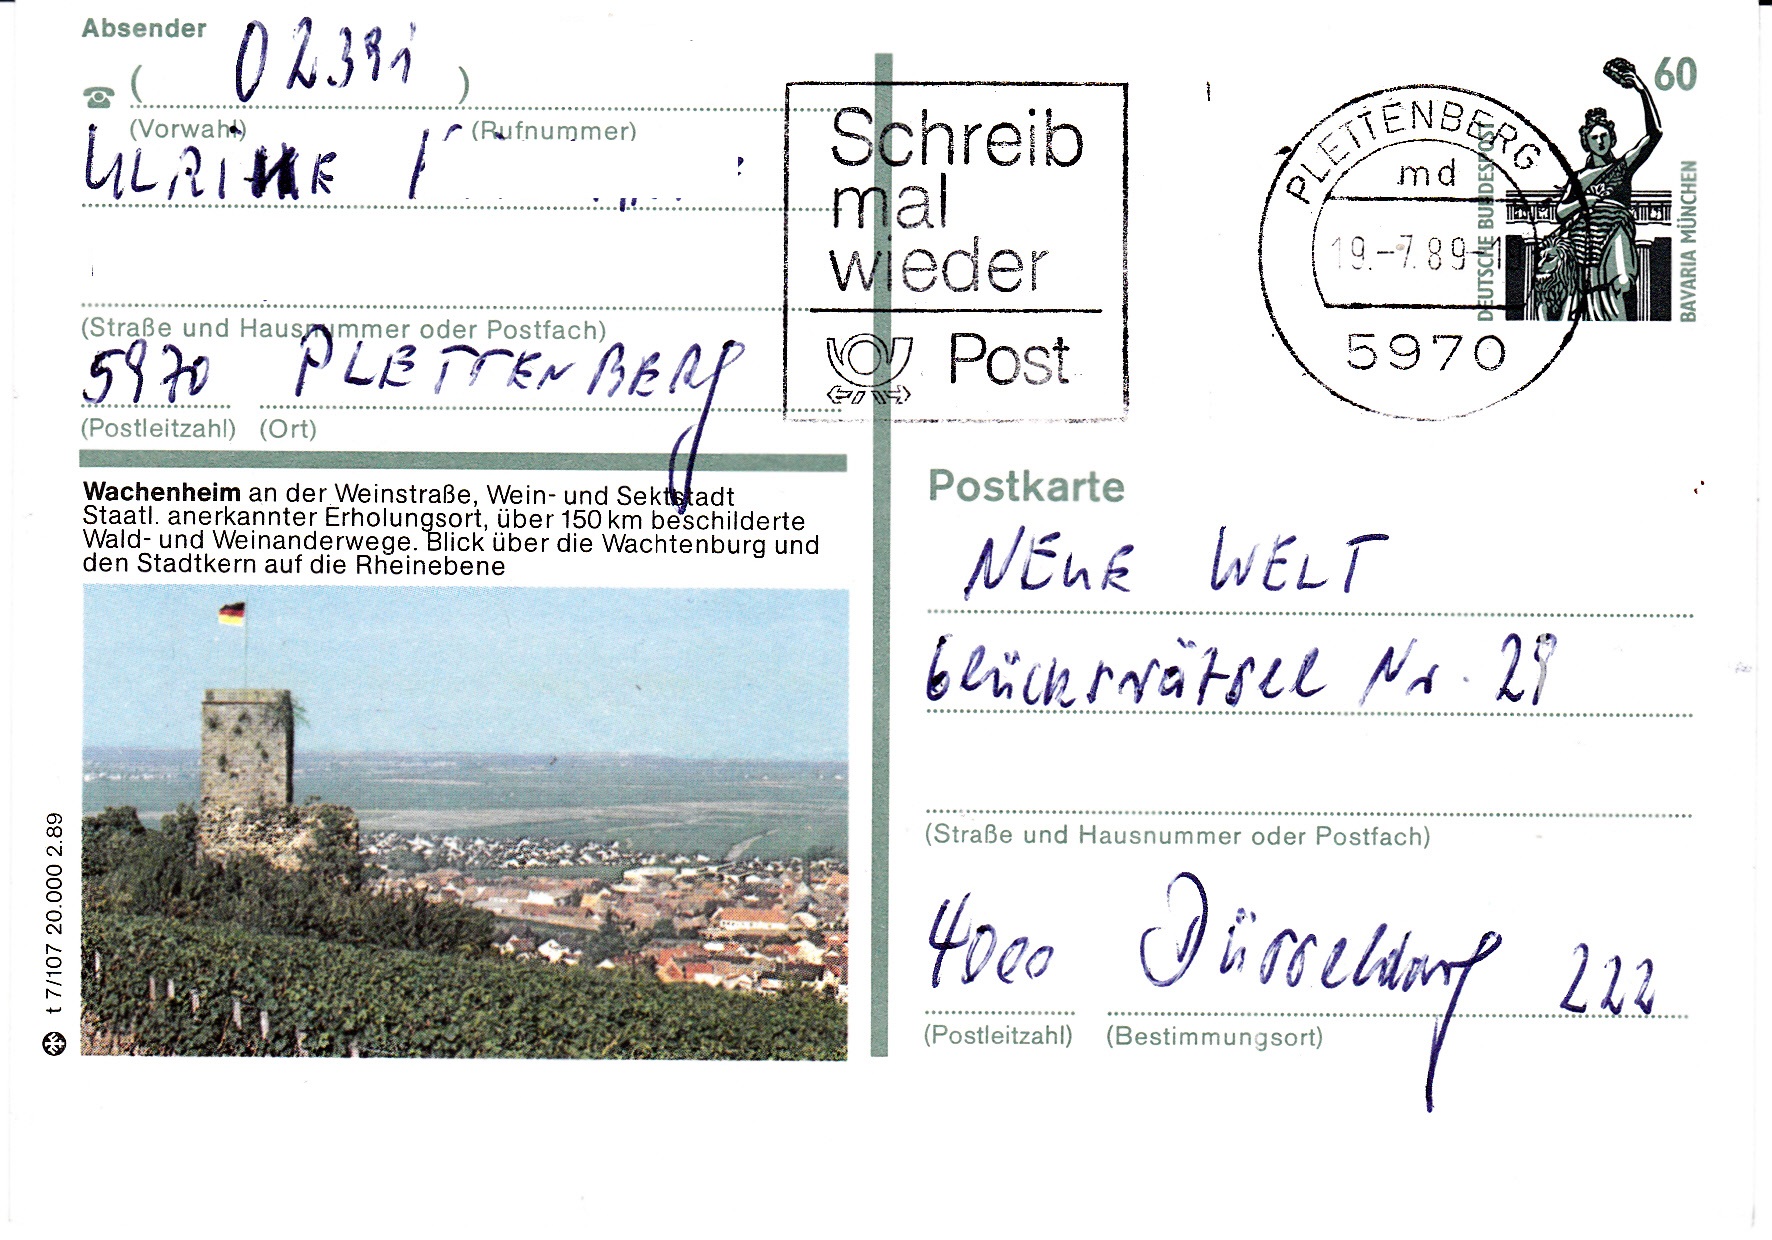 Absender
( 02391 )
(Vorwahl) (Rufnummer)
ULRIKE
(Straße und Hausnummer oder Postfach)
5970 PLETTENBERG
(Postleitzahl) (Ort)
Wachenheim an der Weinstraße, Wein- und Sektstadt
Staatl. anerkannter Erholungsort, über 150 km beschilderte
Wald- und Weinanderwege. Blick über die Wachtenburg und
den Stadtkern auf die Rheinebene
t 7/107 20.000 2.89
Schreib
mal
wieder
Post
PLETTENBERG
md
19.-7.89-1
5970
60
DEUTSCHE BUNDESPOST
BAVARIA MÜNCHEN
Postkarte
NEUE WELT
Glücksrätsel Nr. 29
(Straße und Hausnummer oder Postfach)
4000 Düsseldorf 222
(Postleitzahl) (Bestimmungsort)